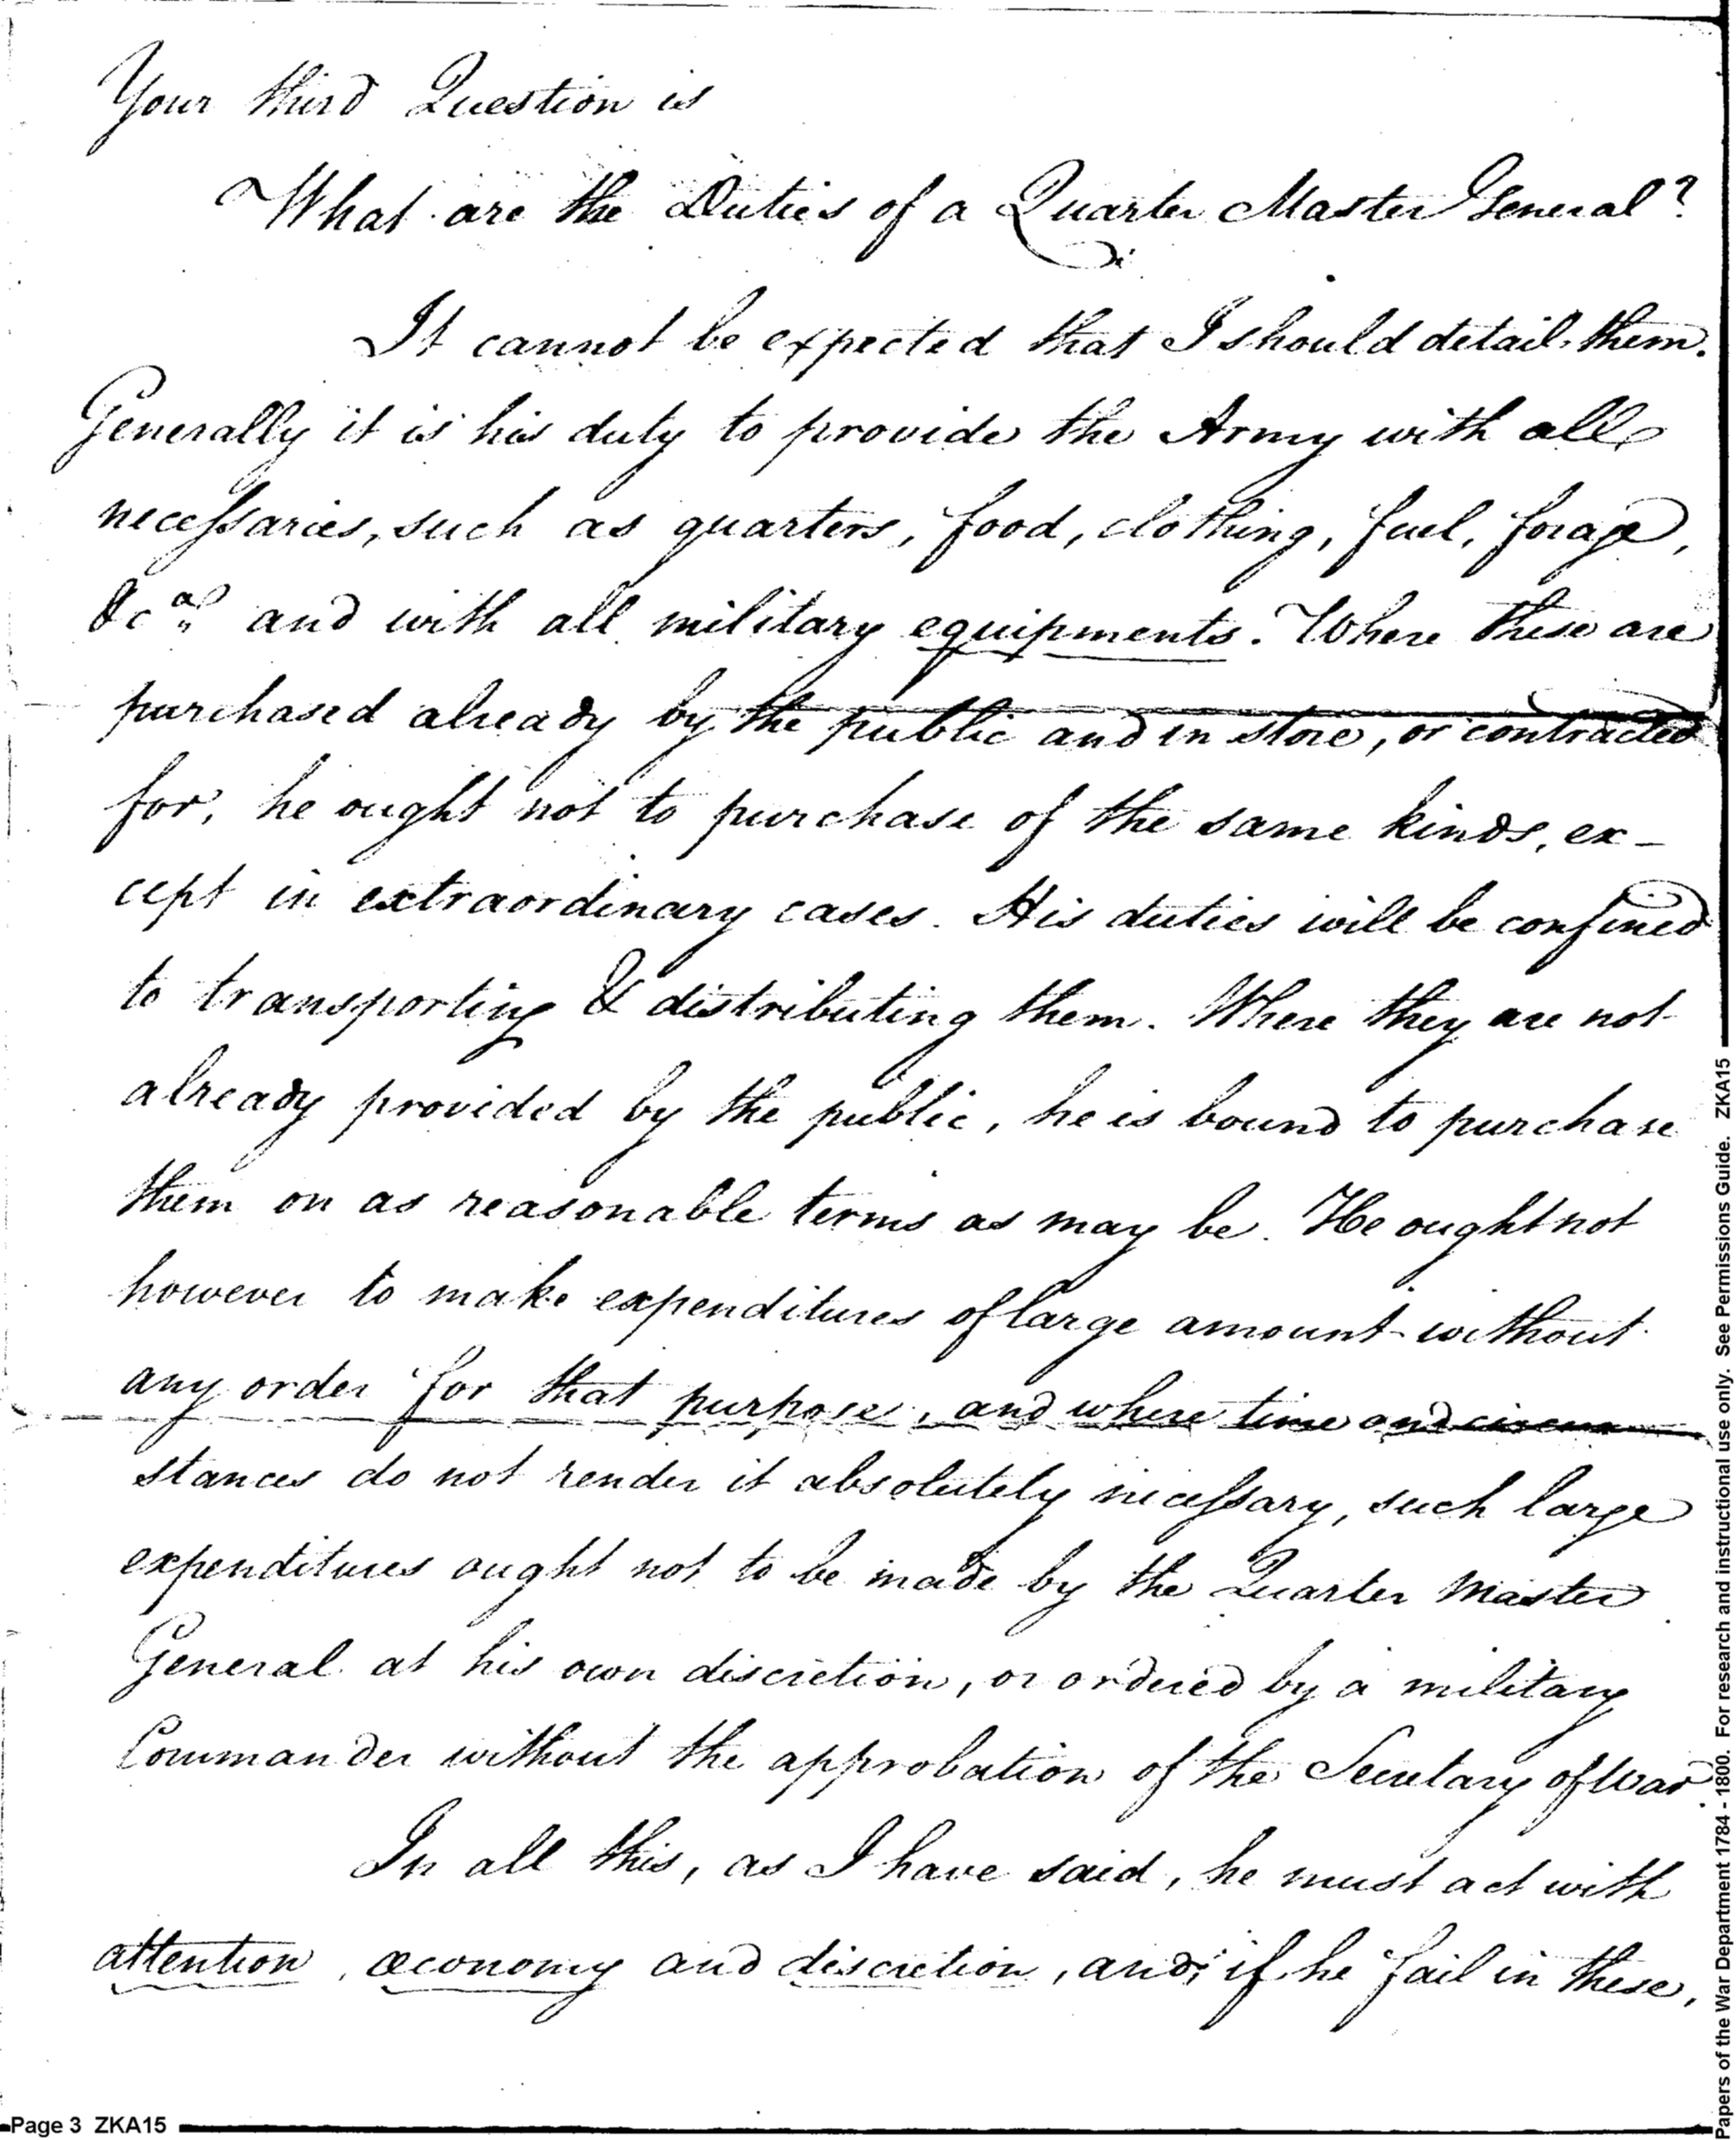 Your third Question is
What are the Duties of a Quarter Master General?
It cannot be expected that I should detail them.
Generally it is his duty to provide the Army with all
necessaries, such as quarters, food, clothing, fuel, forage,
&c.a and with all military equipments. Where these are
purchased already by the public and in store, or contracted
for, he ought not to purchase of the same kinds, ex-
cept in extraordinary cases. His duties will be confined
to transporting & distributing them. Where they are not
already provided by the public, he is bound to purchase
them on as reasonable terms as may be. He ought not
however to make expenditures of large amount without
any order for that purpose, and where time and circum
stances do not render it absolutely necessary, such large
expenditures ought not to be made by the Quarter Master
General at his own discretion, or ordered by a military
Commander without the approbation of the Secretary of War.
In all this, as I have said, he must act with
attention, œconomy and discretion, and, if he fail in these,
Page 3 ZKA15
Papers of the War Department 1784 - 1800. For research and instructional use only. See Permissions Guide. ZKA15